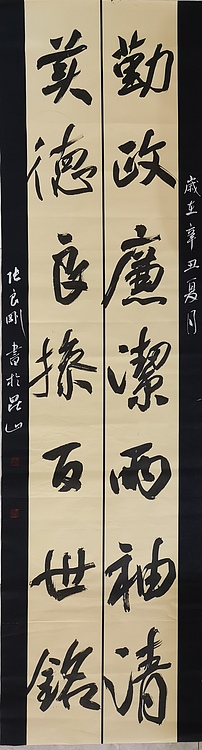 歲在辛丑夏月
勤政廉潔兩袖清
美德良操百世銘
張良剛書於崑山